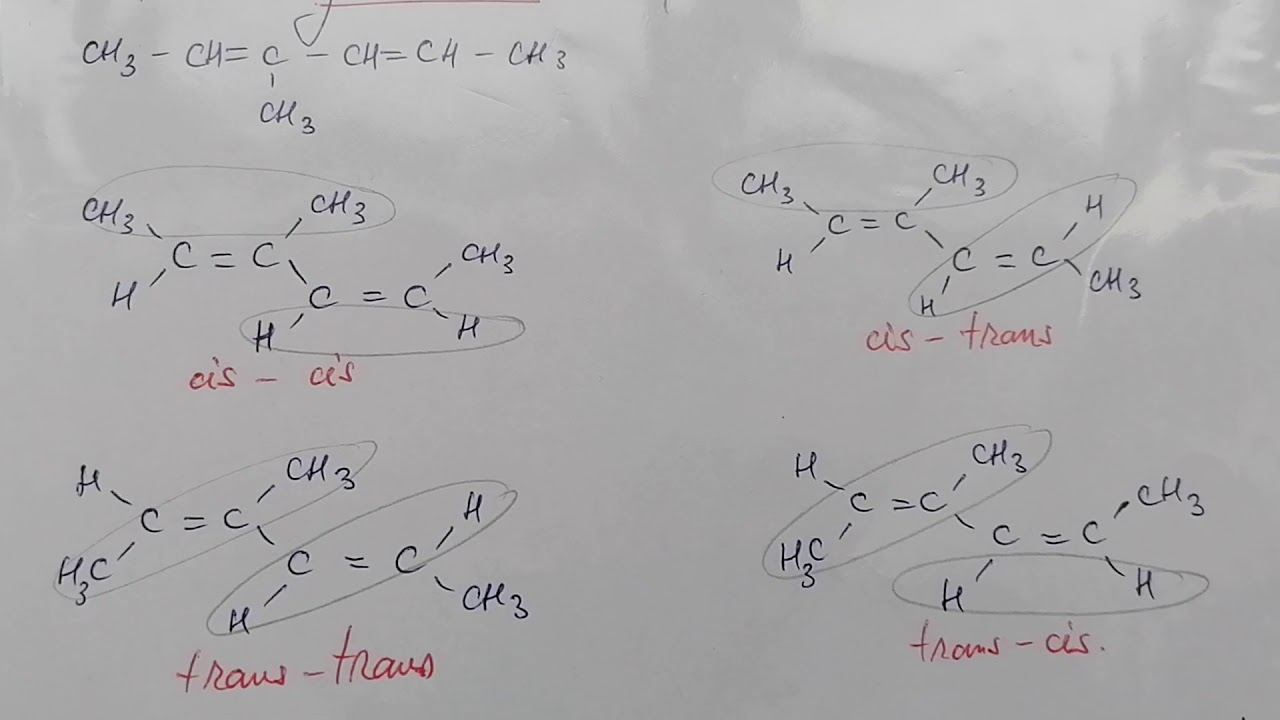 CH3 - CH = C - CH = CH - CH3
CH3
CH3 CH3
C = C CH3
H C = C
H H
cis - cis
CH3 CH3
C = C H
H C = C
H CH3
cis - trans
H CH3
C = C H
H3C C = C
H CH3
trans - trans
H CH3
C = C CH3
H3C C = C
H H
trans - cis.